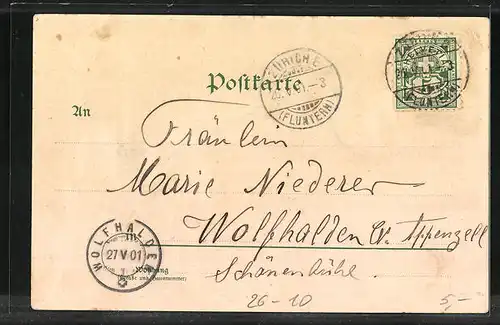 Postkarte
ZÜRICH E.
26.V.01.-3
(FLUNTERN)
HELVETIA
(FLUNTERN)
An
Fräulein
Marie Niederer
Wolfhalden Ct. Appenzell
Schönenbühl.
WOLFHALDEN
27 V 01
Wohnung
(Straße und Hausnummer)
26-10
5,-